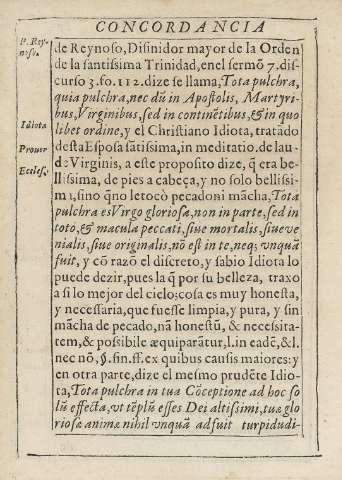 CONCORDANCIA
P. Rey-
noso.
Idiota
Prouer
Eccles.
de Reynoso, Difinidor mayor de la Orden
de la santissima Trinidad, en el sermõ 7. dis-
curso 3. fo. 112. dize se llama, Tota pulchra,
quia pulchra, nec dũ in Apostolis, Martyri-
bus, Virginibus, sed in continẽtibus, & in quo
libet ordine, y el Christiano Idiota, tratãdo
desta Esposa sãtissima, in meditatio. de lau-
de Virginis, a este proposito dize, q̃ era be-
llissima, de pies a cabeça, y no solo bellissi-
ma, sino q̃ no le tocò pecado ni mãcha, Tota
pulchra es Virgo gloriosa, non in parte, sed in
toto, & macula peccati, siue mortalis, siue ve-
nialis, siue originalis, nõ est in te, neq; vnquã
fuit, y cõ razõ el discreto, y sabio Idiota lo
puede dezir, pues la q̃ por su belleza, traxo
a si lo mejor del cielo; cosa es muy honesta,
y necessaria, que fuesse limpia, y pura, y sin
mãcha de pecado, nã honestũ, & necessita-
tem, & possibile æquiparãtur, l. in eadẽ, & l.
nec nõ, §. fin. ff. ex quibus causis maiores: y
en otra parte, dize el mesmo prudẽte Idio-
ta, Tota pulchra in tua Cõceptione ad hoc so
lũ effecta, vt tẽplũ esses Dei altissimi, tuæ glo
riosæ animæ nihil vnquã adfuit turpidudi-